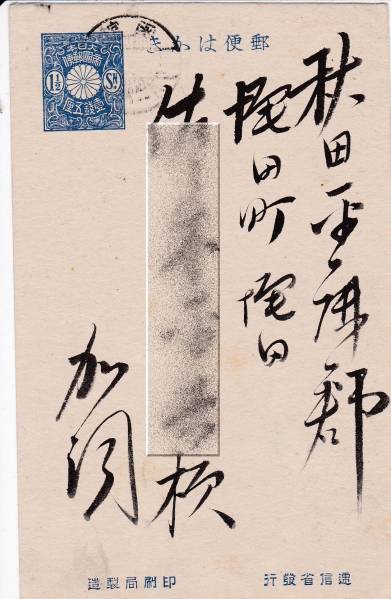 郵便はかき
大日本
帝國郵便
1½ Sn.
壹錢五厘
秋田平鹿郡
増田町 増田
佐
様
加
遞信省發行
印刷局製造